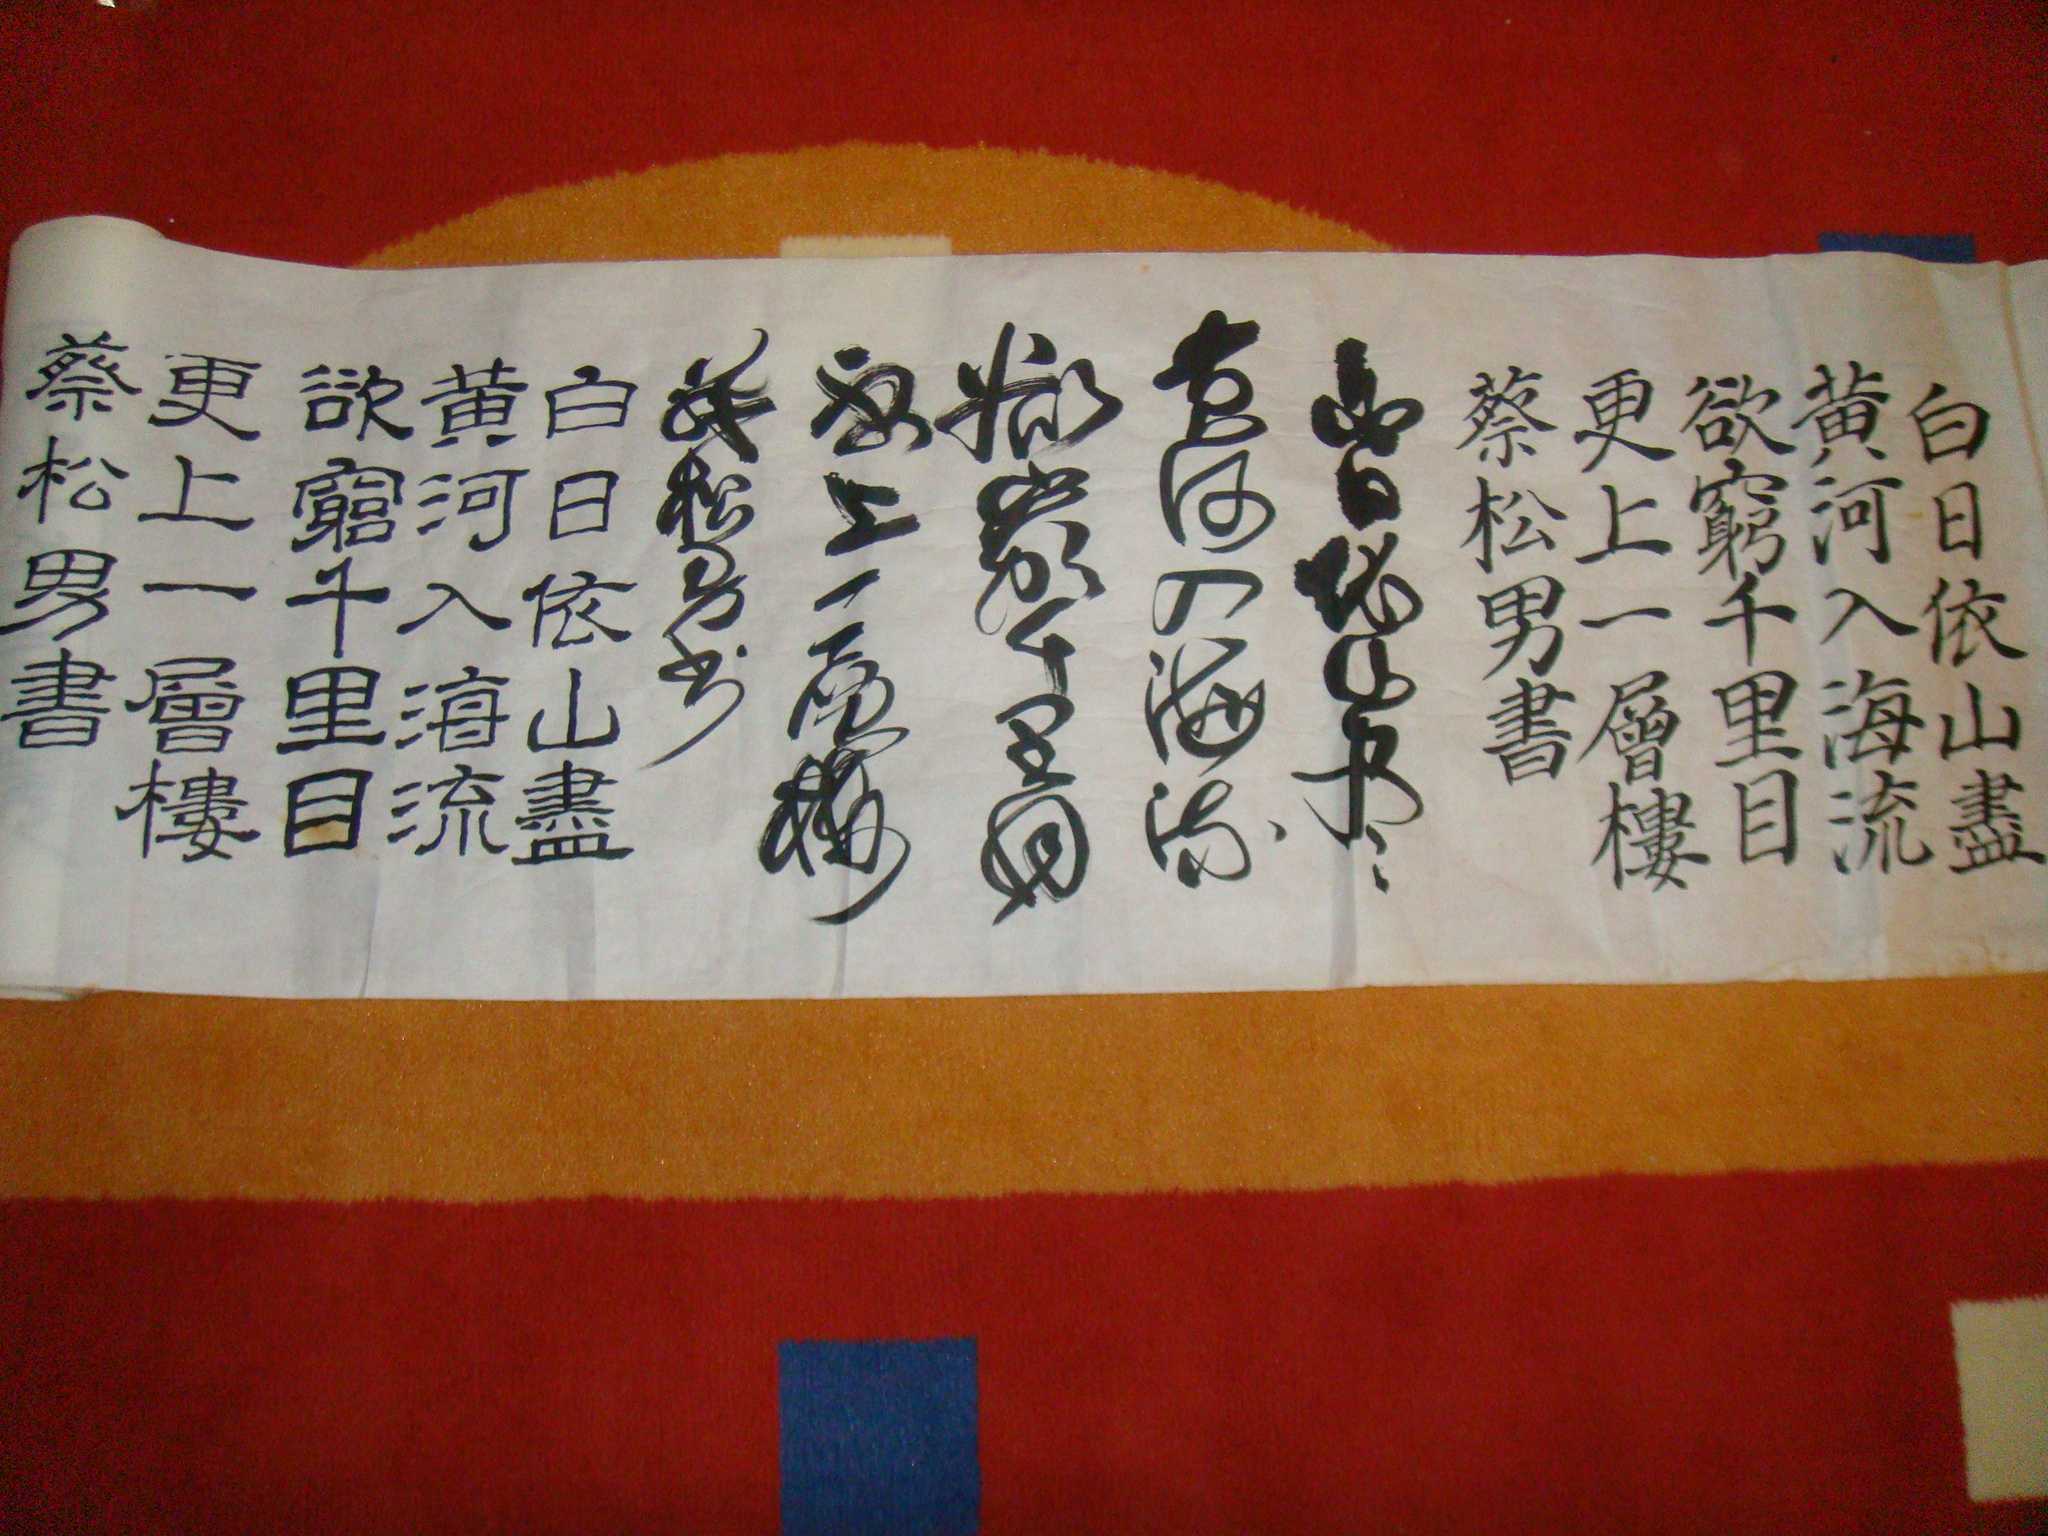 白日依山盡
黃河入海流
欲窮千里目
更上一層樓
蔡松男書
白日依山尽
黃河入海流
欲窮千里目
更上一層樓
蔡松男书
白日依山盡
黃河入海流
欲窮千里目
更上一層樓
蔡松男書